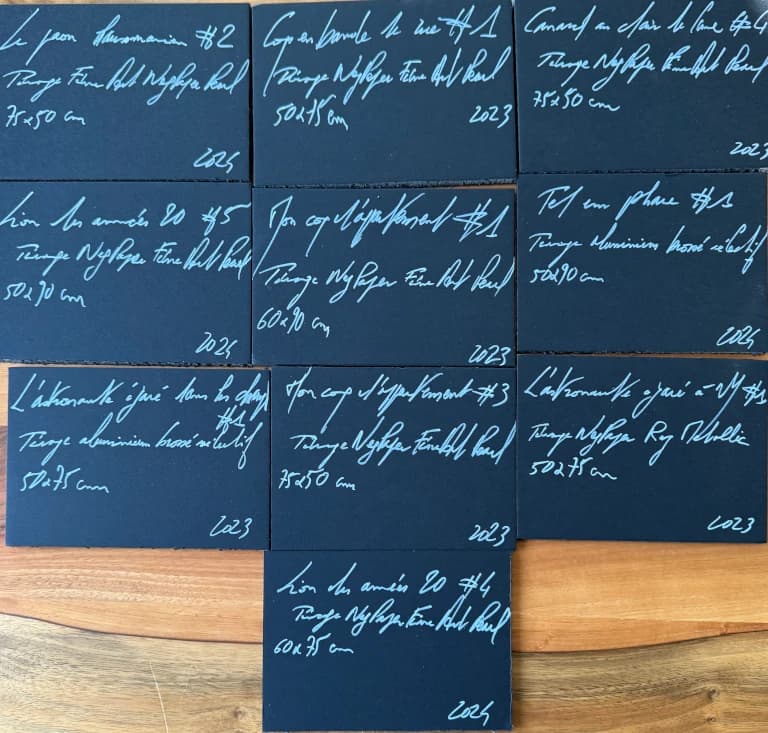 Le paon Haussmannien #2
Tirage NegPaper Fine Art Pearl
75x50 cm
2024
Coq en bande le ire #1
Tirage NegPaper Fine Art Pearl
50x75 cm
2023
Canard au clair de lune #4
Tirage NegPaper Fine Art Pearl
75x50 cm
2023
Lion des années 20 #5
Tirage NegPaper Fine Art Pearl
50x90 cm
2024
Mon coq d'appartement #1
Tirage NegPaper Fine Art Pearl
60x90 cm
2023
Tel un phare #1
Tirage aluminium brossé sélectif
50x90 cm
2024
L'astronaute égaré dans les champs
#1
Tirage aluminium brossé sélectif
50x75 cm
2023
Mon coq d'appartement #3
Tirage NegPaper Fine Art Pearl
75x50 cm
2023
L'astronaute égaré à NY #1
Tirage NegPaper Ray Metallic
50x75 cm
2023
Lion des années 20 #4
Tirage NegPaper Fine Art Pearl
60x75 cm
2024